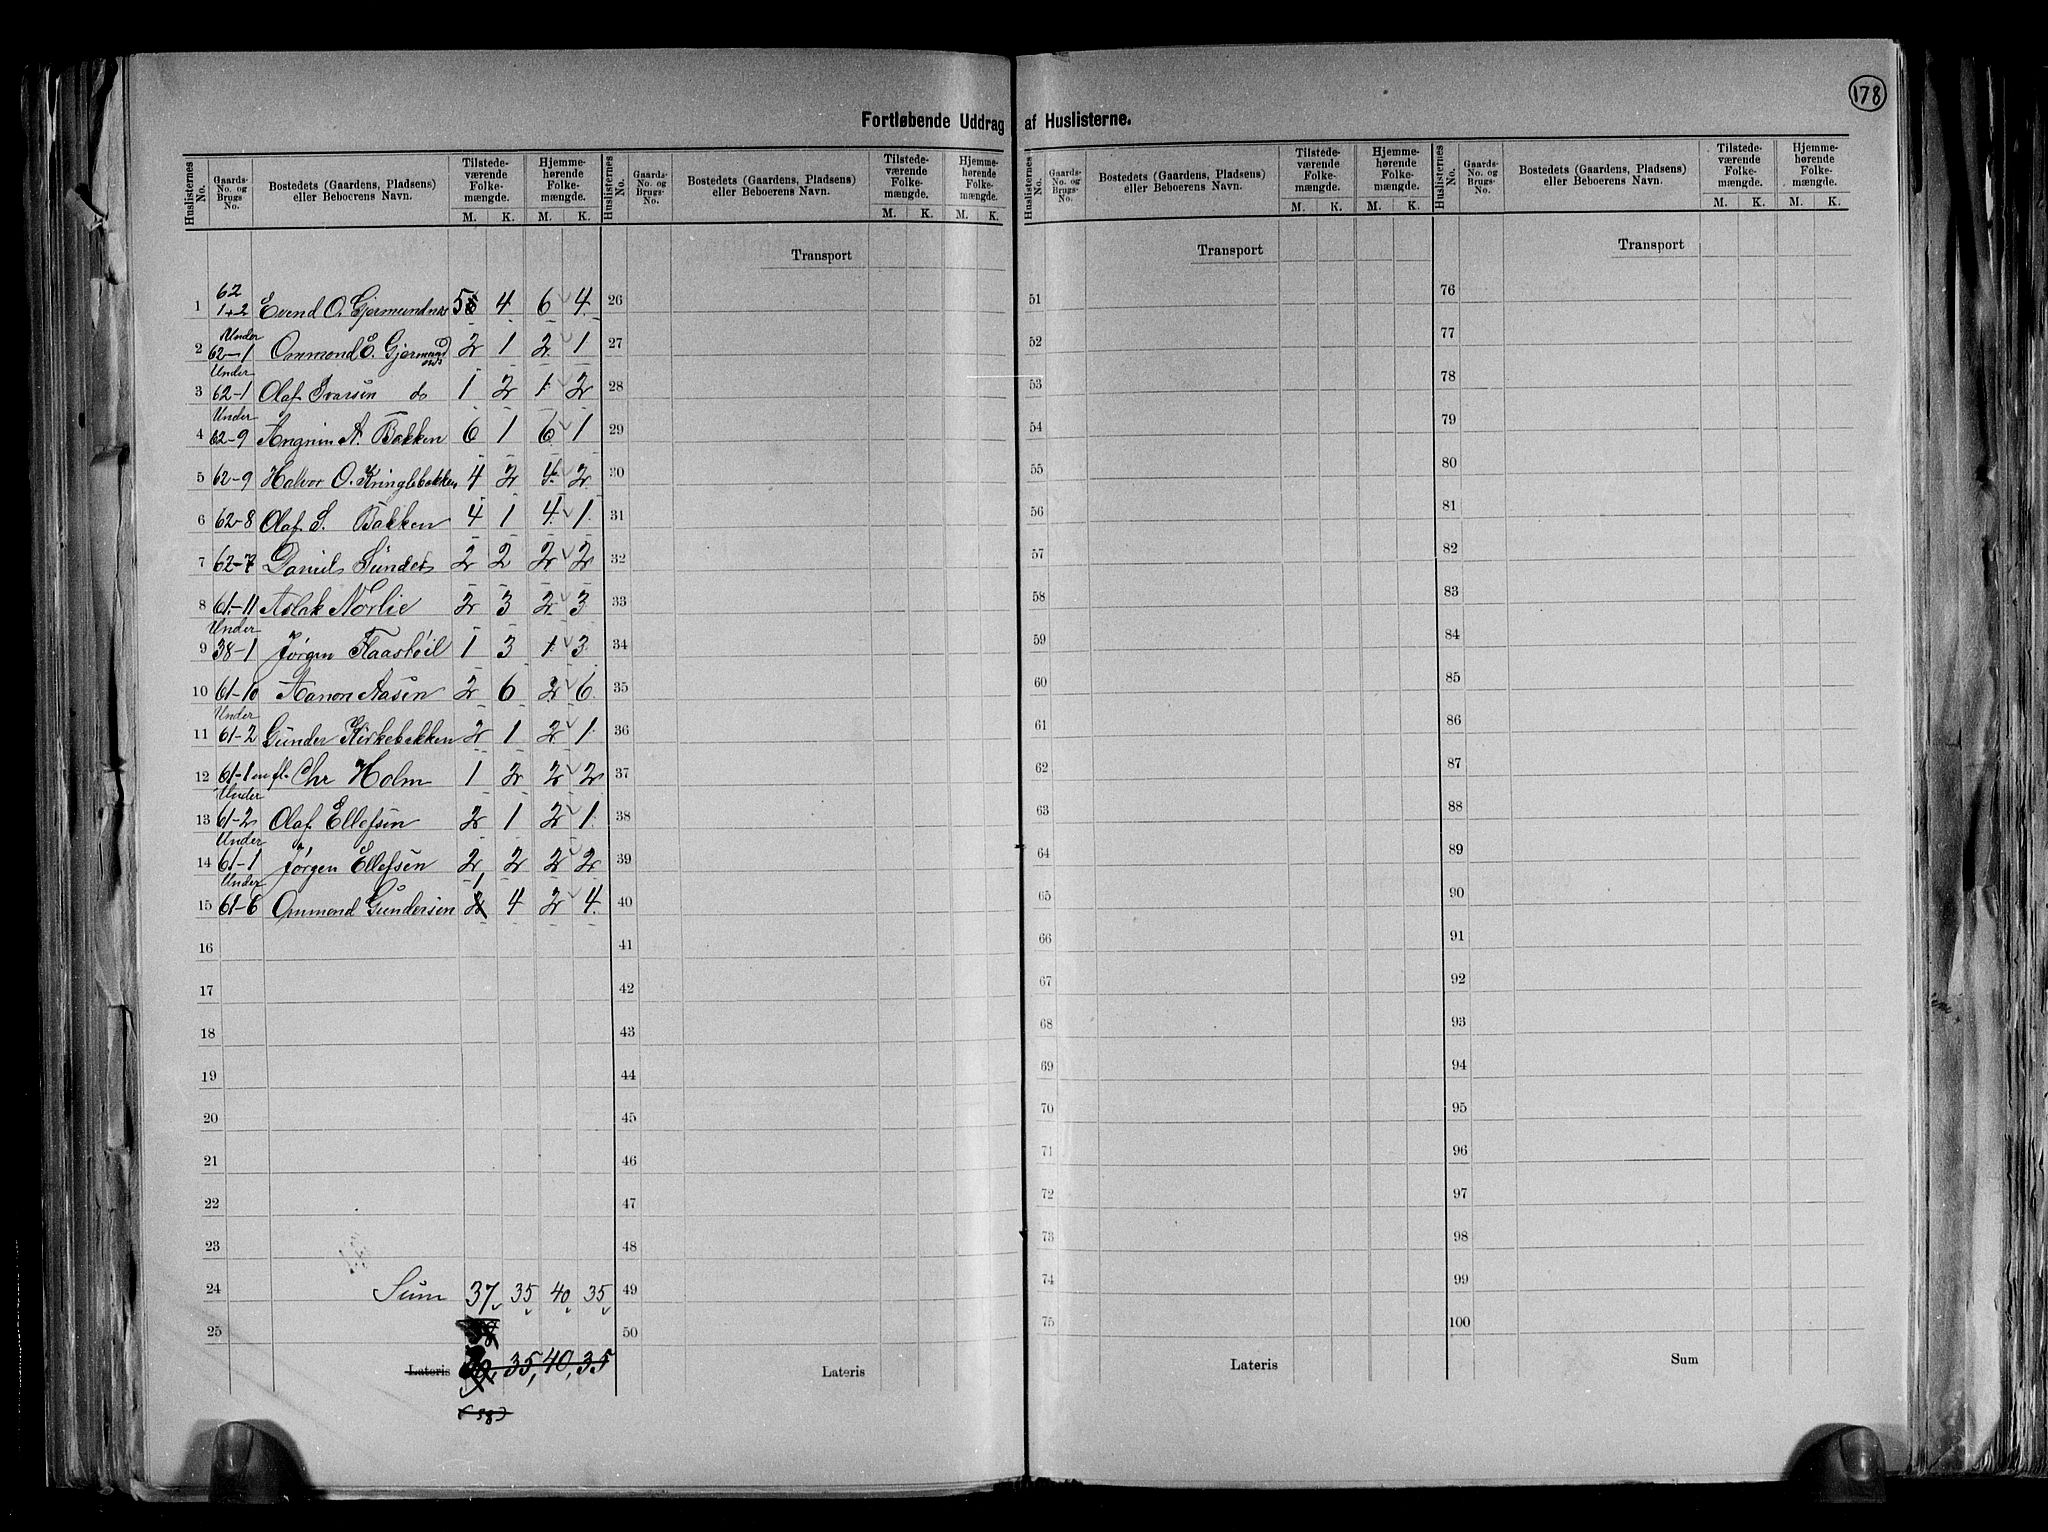 178
Fortløbende Uddrag af Huslisterne.
Huslisternes No. Gaards-No. og Brugs-No. Bostedets (Gaardens, Pladsens) eller Beboerens Navn. Tilstedeværende Folkemængde. M. K. Hjemmehørende Folkemængde. M. K.
Huslisternes No. Gaards-No. og Brugs-No. Bostedets (Gaardens, Pladsens) eller Beboerens Navn. Tilstedeværende Folkemængde. M. K. Hjemmehørende Folkemængde. M. K.
Huslisternes No. Gaards-No. og Brugs-No. Bostedets (Gaardens, Pladsens) eller Beboerens Navn. Tilstedeværende Folkemængde. M. K. Hjemmehørende Folkemængde. M. K.
Huslisternes No. Gaards-No. og Brugs-No. Bostedets (Gaardens, Pladsens) eller Beboerens Navn. Tilstedeværende Folkemængde. M. K. Hjemmehørende Folkemængde. M. K.
Transport Transport Transport
1 62 1+2 Evend O. 5 4 6 4 26 51 76
2 Under 62-1 Ommond E. 2 1 2 1 27 52 77
3 Under 62-1 Olaf Ivarsen do 1 2 1 2 28 53 78
4 Under 62-9 A. Bakken 6 1 6 1 29 54 79
5 62-9 Halvor O. Kringlebakken 4 2 4 2 30 55 80
6 62-8 Olaf S. Bakken 4 1 4 1 31 56 81
7 62-7 Daniel 2 2 2 2 32 57 82
8 61-11 Aslak Norlie 2 3 2 3 33 58 83
9 Under 38-1 Jørgen Flaastøil 1 3 1 3 34 59 84
10 61-10 Aanon Aasen 2 6 2 6 35 60 85
11 Under 61-2 Gunder Kirkebakken 2 1 2 1 36 61 86
12 61-1 m fl. Chr Holm 1 2 2 2 37 62 87
13 Under 61-2 Olaf Ellefsen 2 1 2 1 38 63 88
14 Under 61-1 Jørgen Ellefsen 2 2 2 2 39 64 89
15 Under 61-6 Ommond Gundersen 1 4 2 4 40 65 90
16 41 66 91
17 42 67 92
18 43 68 93
19 44 69 94
20 45 70 95
21 46 71 96
22 47 72 97
23 48 73 98
24 Sum 37 35 40 35 49 74 99
25 50 75 100
Lateris 35, 40, 35 Lateris Lateris Sum
(38)